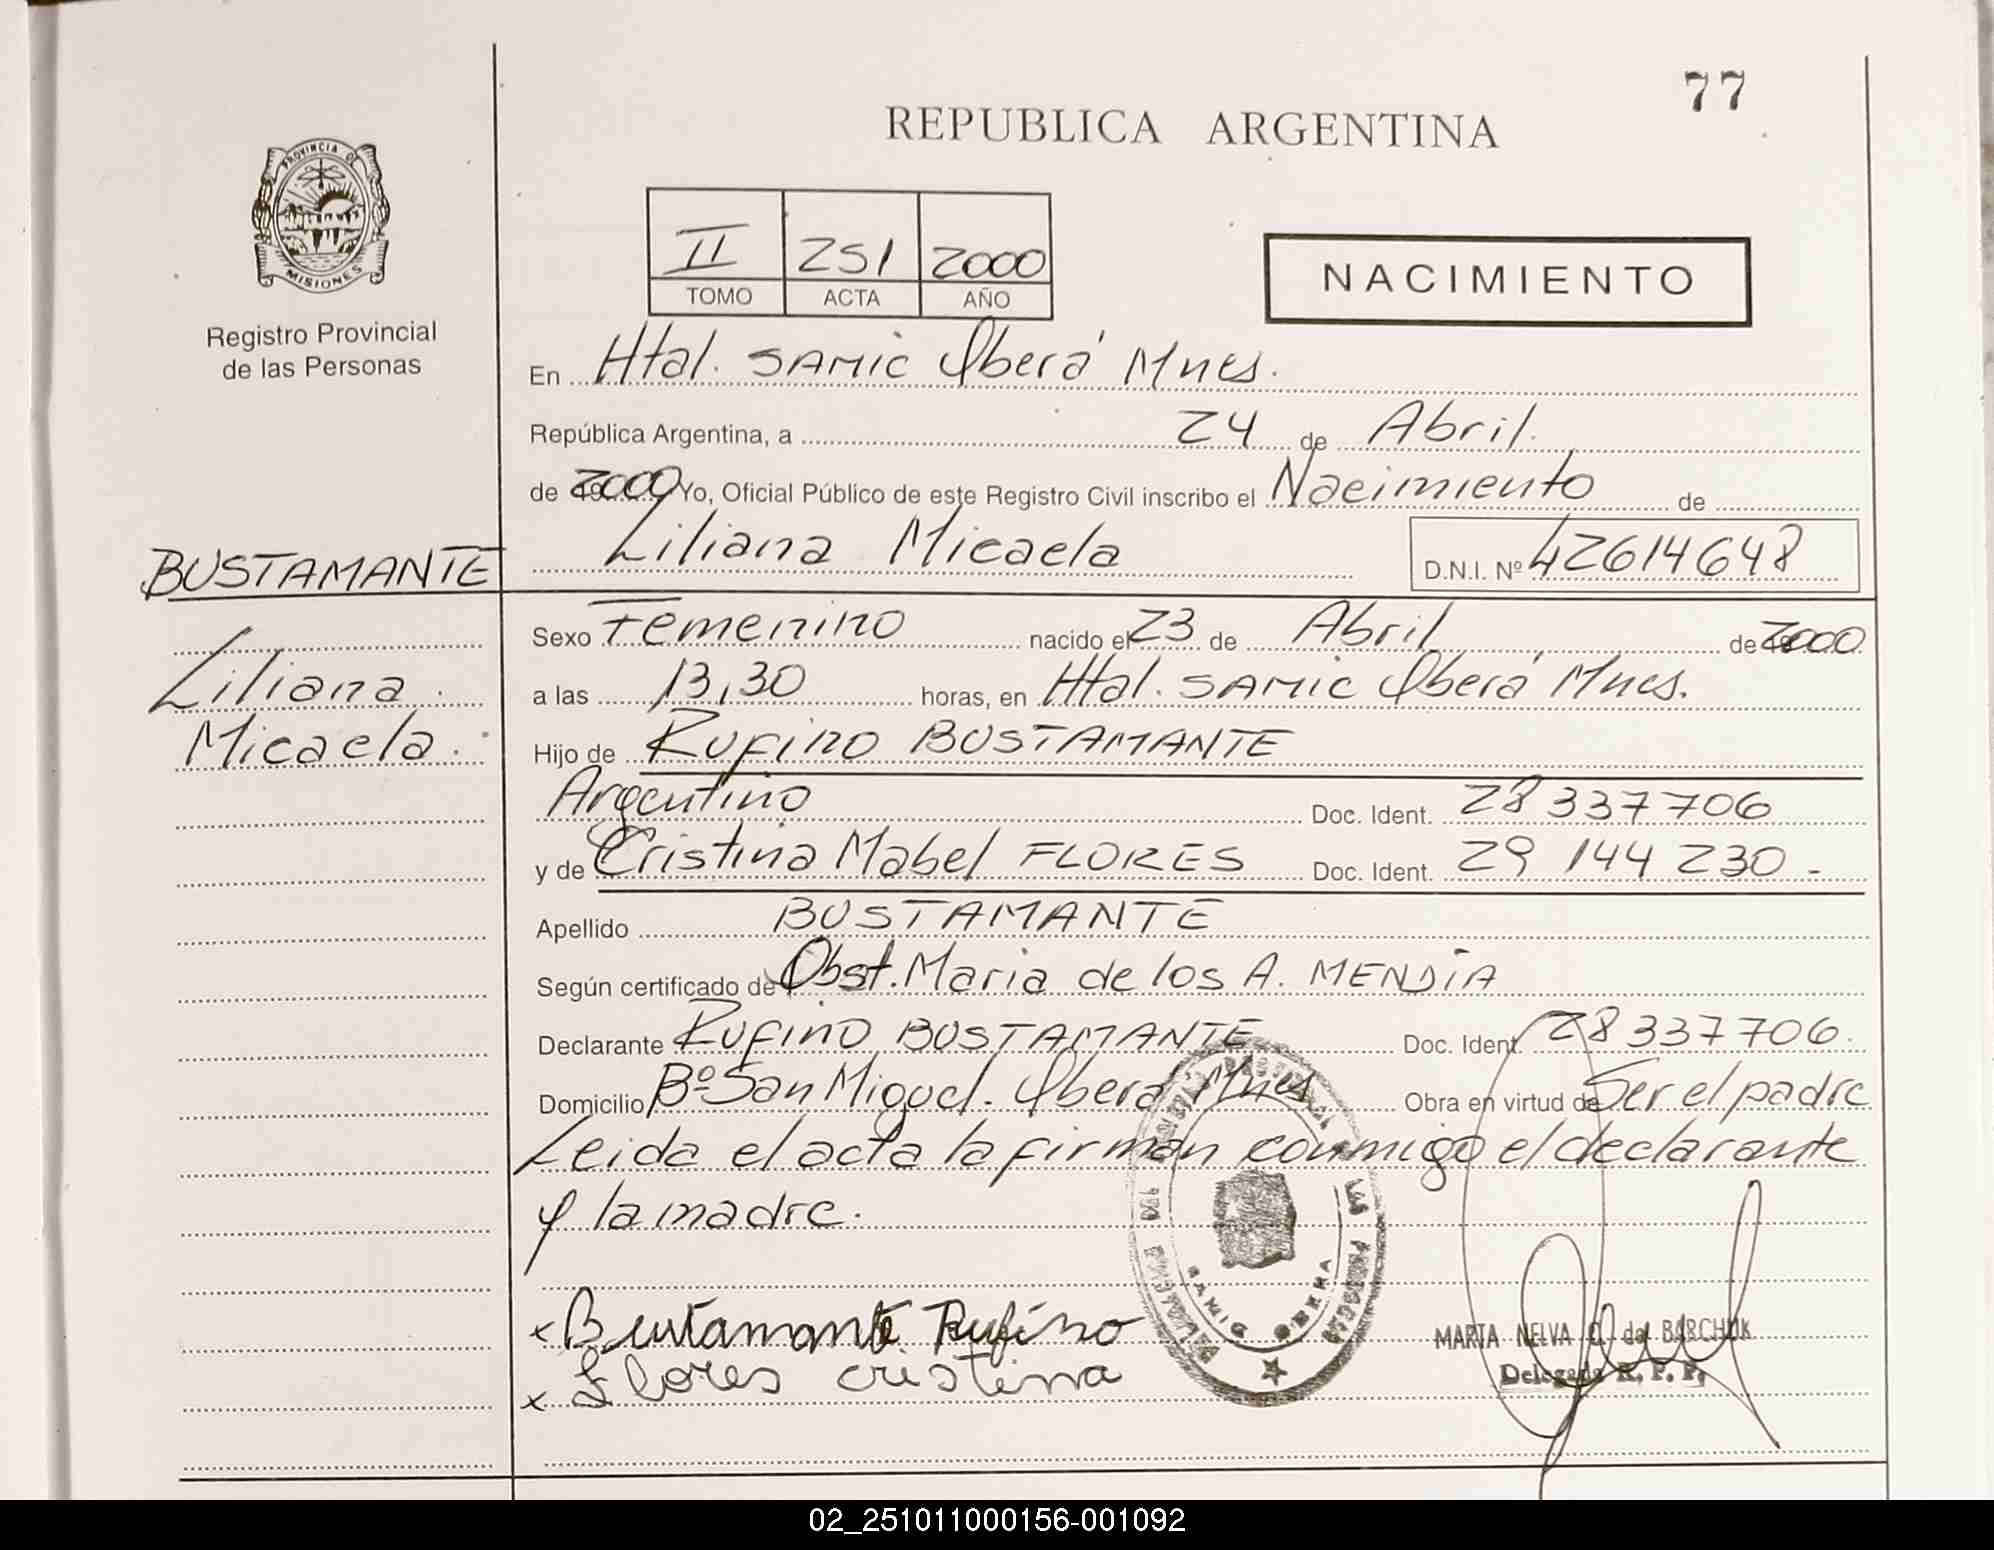 77
REPUBLICA ARGENTINA
PROVINCIA DE
MISIONES
Registro Provincial
de las Personas
II 251 2000
TOMO ACTA AÑO
NACIMIENTO
En Htal. SAMIC Oberá Mnes.
República Argentina, a 24 de Abril.
de 2000 Yo, Oficial Público de este Registro Civil inscribo el Nacimiento de
BUSTAMANTE
Liliana Micaela D.N.I. Nº 42614648
Liliana
Micaela.
Sexo Femenino nacido el 23 de Abril de 2000
a las 13,30 horas, en Htal. SAMIC Oberá Mnes.
Hijo de Rufino BUSTAMANTE
Argentino Doc. Ident. 28 337 706
y de Cristina Mabel FLORES Doc. Ident. 29 144 230 -
Apellido BUSTAMANTE
Según certificado de Obst. Maria de los A. MENDÍA
Declarante Rufino BUSTAMANTE Doc. Ident. 28 337 706.
Domicilio Bº San Miguel. Oberá Mnes Obra en virtud de Ser el padre
Leida el acta la firman conmigo el declarante
y la madre.
x Bustamante Rufino
x Flores cristina
SAMIC OBERA
MARTA NELVA de BARCHUK
Delegada R. P. P.
02_251011000156-001092